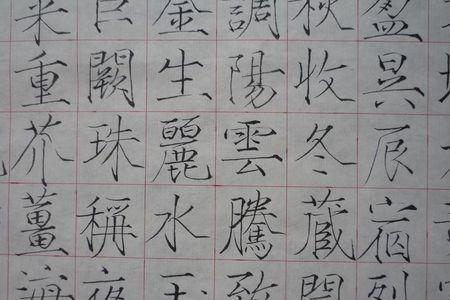 盈昃辰宿列
秋收冬藏閏
調陽雲騰致
金生麗水玉
巨闕珠稱夜
菜重芥薑海